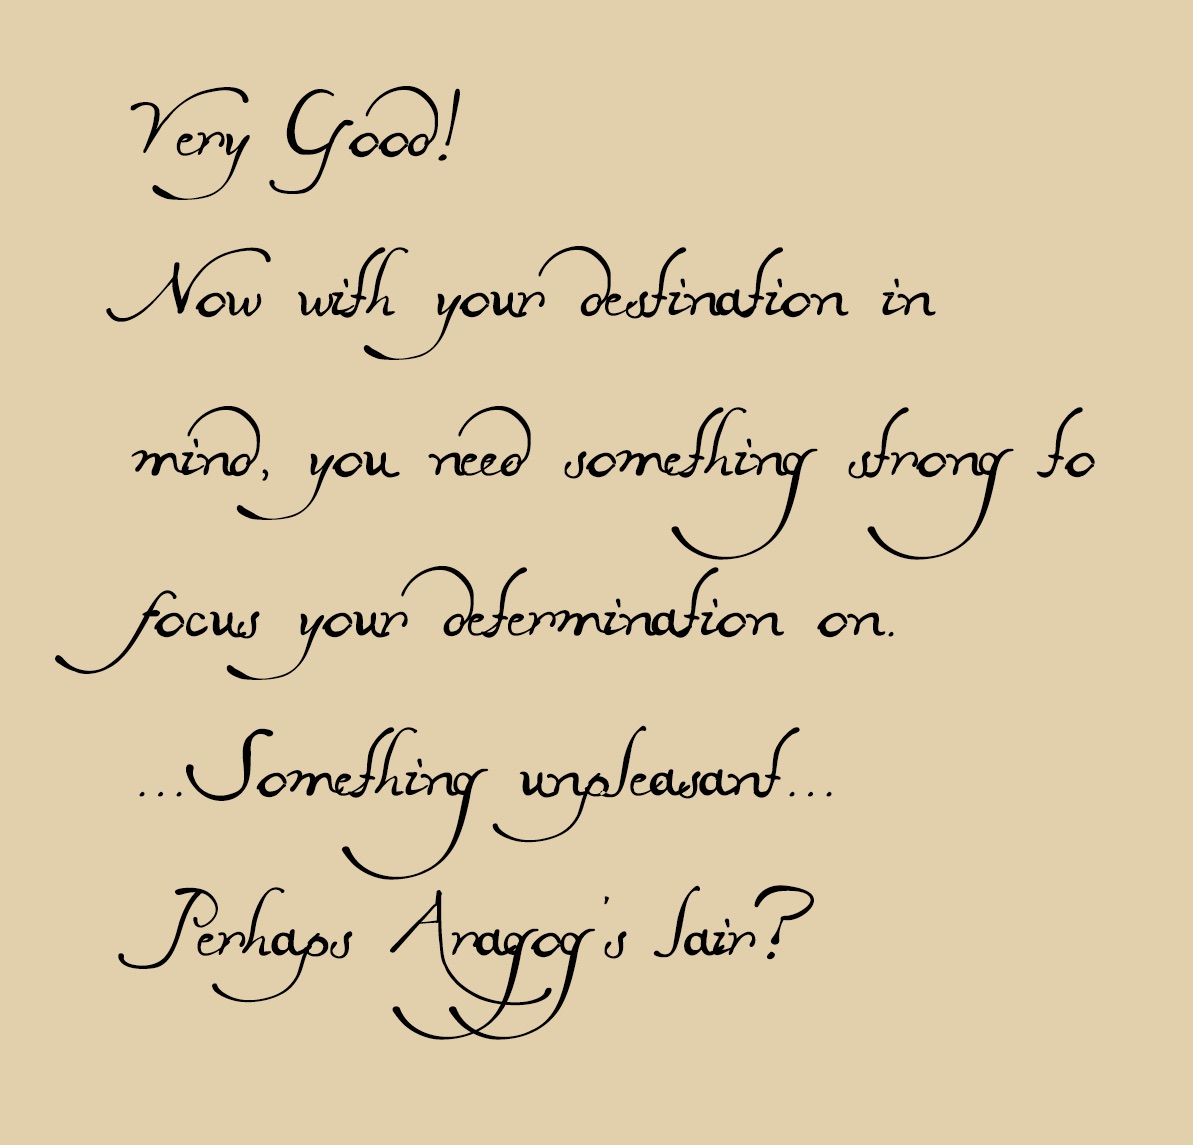 Very Good!
Now with your destination in
mind, you need something strong to
focus your determination on.
...Something unpleasant...
Perhaps Aragog's lair?